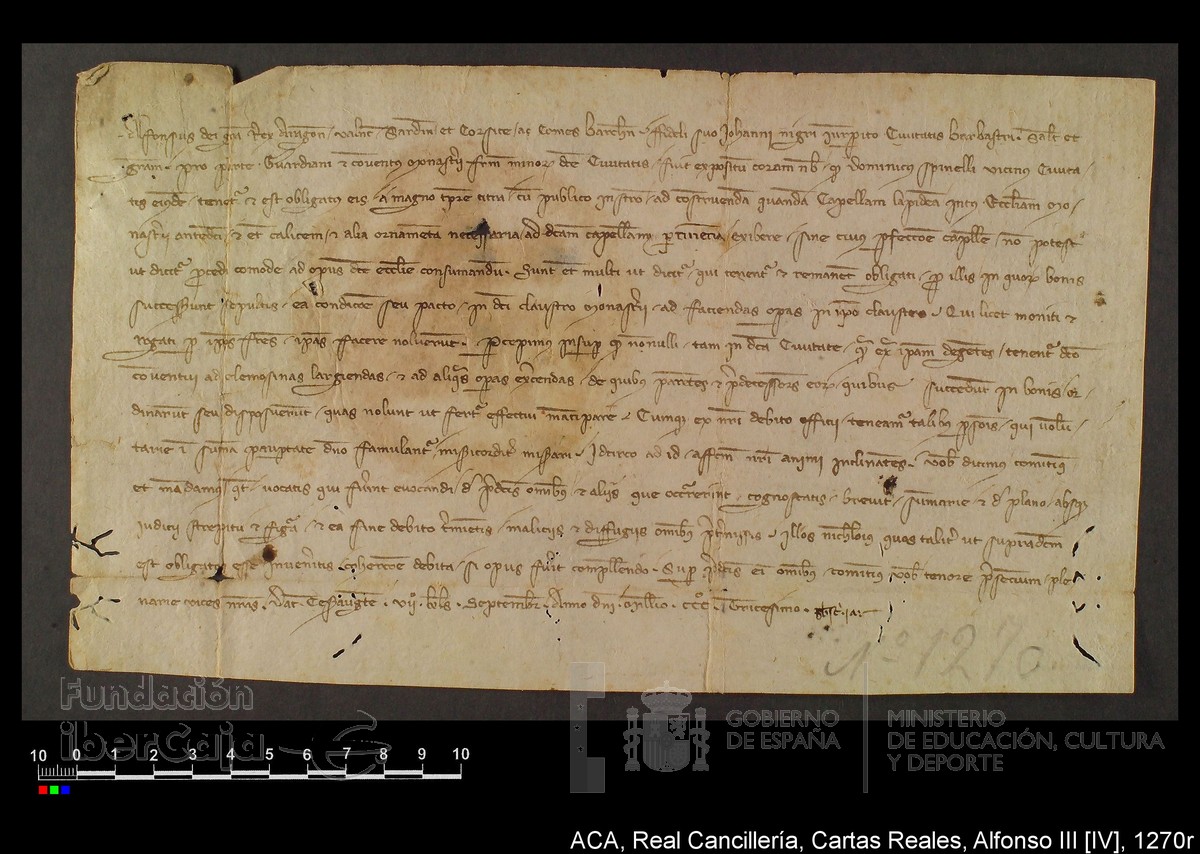 Alfonsus dei gra Rex Aragon, Valent, Sardin et Corsice, ac Comes Barchn. fideli suo Johanni nigri Iurisperito Civitatis Barbastri. Salt et
gram. pro parte Guardiani & conventus Monasterii frm minor dce Civitatis, fuit expositu coram nb, q Dominicus Spinelli vicinus Civita
tis eiusde, tenet & est obligatus eis, a magno tpre citra, cu publico instro, ad costruenda quanda Capellam lapidea intus Eccliam Mo-
nasterii antedci, & et calicem, & alia ornameta necessaria, ad dcam capellam exibere, sine cuius pfeccoe caplle, no potest
ut dicit pcedi comode ad opus dce ecclie consumandu. Sunt et multi ut dicit, qui tenent & remanet obligati, p illis in quor bonis
successerunt sepultis, ea condicoe seu pacto, in dci claustro Monasterii, ad faciendas opas in ipo claustro. Qui licet moniti &
rogati p ipos ffres, ipas facere noluerut. Pcepimus insup q nonulli, tam in dca Civitate, q ex ipam degetes, tenent dco
coventui ad elemosinas largiendas, & ad aliqs opas exercendas, de quibus paretes & pdecessores eor, quibus succedut in bonis, or-
dinarut seu disposuerut, quas nolunt ut fert effectui macipare. Cumq ex nri debito officii, teneam talibus psois, qui volu-
tarie i suma paupertate dno famulant, misericordit. Idcirco ad id, affcm nri animi inclinates. Vob dicimus comittim
et madamus qt, vocatis qui fuerint evocandi, d pdcis omibus & aliis que occurrerint, cognoscatis, brevit, sumarie & d plano, absq
iudicii strepitu & figa, & ea fine debito tminetis, maliciis & diffugiis omibus ptmissis. Illos nichilois, quos talit ut supradcm
est obligatos esse inveneritis, cohercoe debita, si opus fuerit compellendo. Sup pdcis ei omibus & comittim vob tenore psecium, ple-
narie vices nras. Dat Cesaugte. VII kls Septembr. Anno dni Millio CCC Tricesimo.
Nº 1270
Fundación
iberCaja
10 0 1 2 3 4 5 6 7 8 9 10
GOBIERNO
DE ESPAÑA
MINISTERIO
DE EDUCACIÓN, CULTURA
Y DEPORTE
ACA, Real Cancillería, Cartas Reales, Alfonso III [IV], 1270r